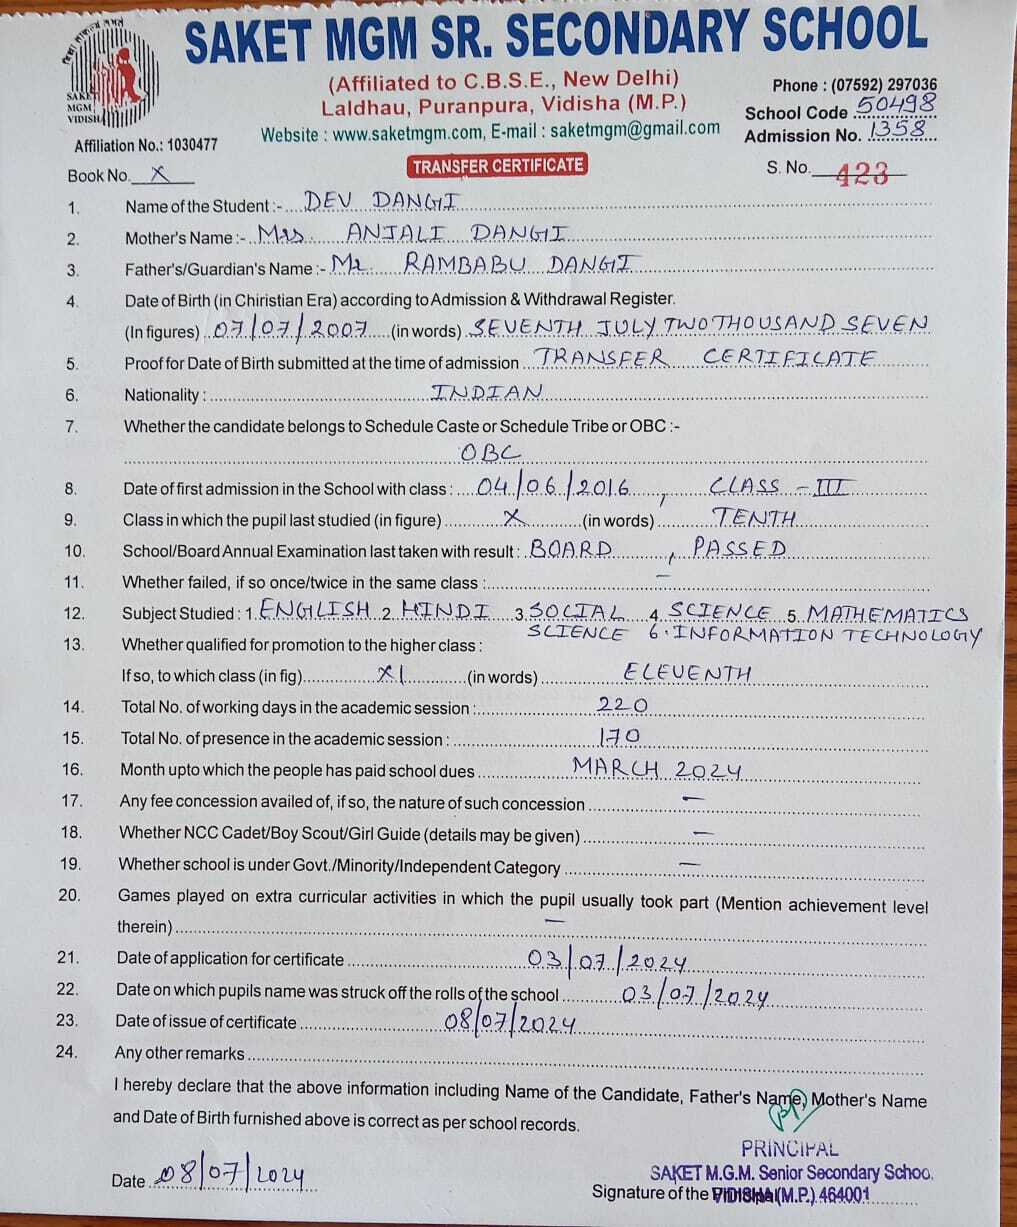 SAKET MGM SR. SECONDARY SCHOOL
(Affiliated to C.B.S.E., New Delhi)
Laldhau, Puranpura, Vidisha (M.P.)
Website : www.saketmgm.com, E-mail : saketmgm@gmail.com
SAKET
MGM
VIDISHA
Affiliation No.: 1030477
Phone : (07592) 297036
School Code 50498
Admission No. 1358
Book No. X
TRANSFER CERTIFICATE
S. No. 423
1. Name of the Student :- DEV DANGI
2. Mother's Name :- Mrs. ANJALI DANGI
3. Father's/Guardian's Name :- Mr. RAMBABU DANGI
4. Date of Birth (in Chiristian Era) according to Admission & Withdrawal Register.
(In figures) 07/07/2007 (in words) SEVENTH JULY TWO THOUSAND SEVEN
5. Proof for Date of Birth submitted at the time of admission TRANSFER CERTIFICATE
6. Nationality : INDIAN
7. Whether the candidate belongs to Schedule Caste or Schedule Tribe or OBC :-
OBC
8. Date of first admission in the School with class : 04/06/2016, CLASS - III
9. Class in which the pupil last studied (in figure) X (in words) TENTH
10. School/Board Annual Examination last taken with result : BOARD, PASSED
11. Whether failed, if so once/twice in the same class : -
12. Subject Studied : 1. ENGLISH 2. HINDI 3. SOCIAL 4. SCIENCE 5. MATHEMATICS
SCIENCE 6. INFORMATION TECHNOLOGY
13. Whether qualified for promotion to the higher class :
If so, to which class (in fig) XI (in words) ELEVENTH
14. Total No. of working days in the academic session : 220
15. Total No. of presence in the academic session : 170
16. Month upto which the people has paid school dues MARCH 2024
17. Any fee concession availed of, if so, the nature of such concession -
18. Whether NCC Cadet/Boy Scout/Girl Guide (details may be given) -
19. Whether school is under Govt./Minority/Independent Category -
20. Games played on extra curricular activities in which the pupil usually took part (Mention achievement level
therein) -
21. Date of application for certificate 03/07/2024
22. Date on which pupils name was struck off the rolls of the school 03/07/2024
23. Date of issue of certificate 08/07/2024
24. Any other remarks
I hereby declare that the above information including Name of the Candidate, Father's Name, Mother's Name
and Date of Birth furnished above is correct as per school records.
PRINCIPAL
SAKET M.G.M. Senior Secondary Schoo.
Date 08/07/2024
Signature of the Principal
VIDISHA (M.P.) 464001